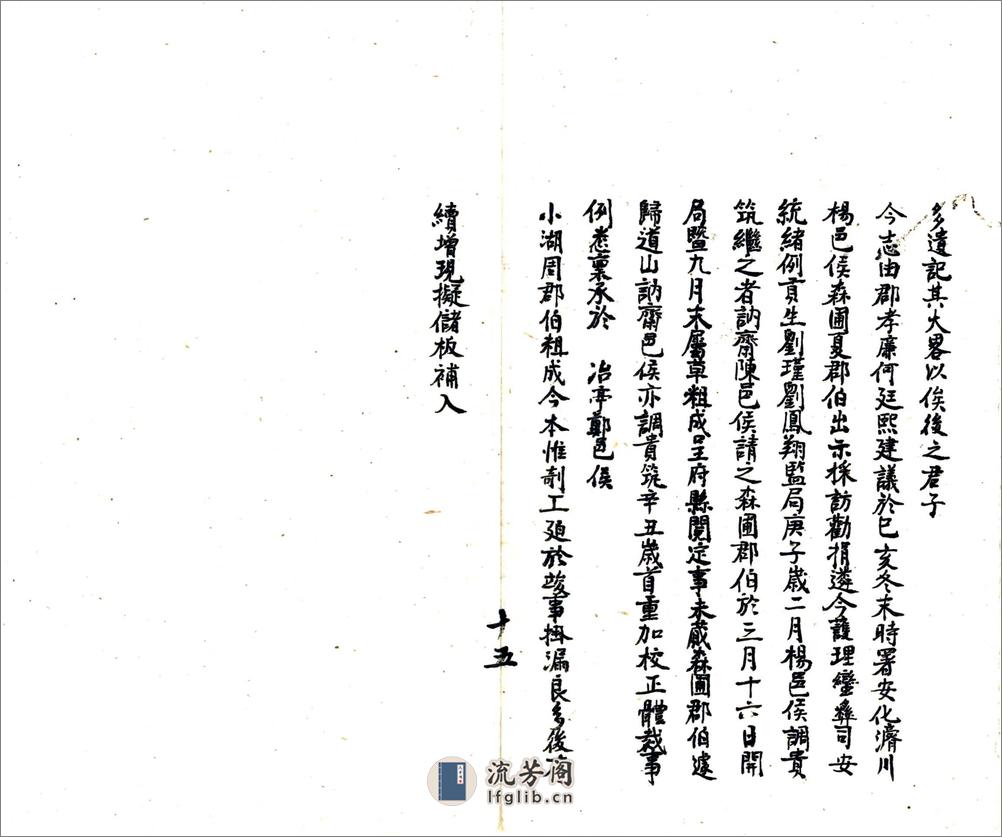 多遺記其大畧以俟後之君子
今志由郡孝廉何廷熙建議於己亥冬末時署安化濟川
楊邑侯森圃夏郡伯出示採訪勸捐遴今護理蠻彝司安
統緒例貢生劉瑾劉鳳翔監局庚子歲二月楊邑侯調貴
筑繼之者訥齋陳邑侯請之森圃郡伯於三月十六日開
局暨九月末屬草粗成呈府縣閱定事未蕆森圃郡伯遽
歸道山訥齋邑侯亦調貴筑辛丑歲首重加校正體裁事
例悉稟承於 冶亭鄭邑侯
小湖周郡伯粗成今本惟剞工廹於竣事掛漏良多後
續增現擬儲板補入
十五
流芳阁
lfglib.cn